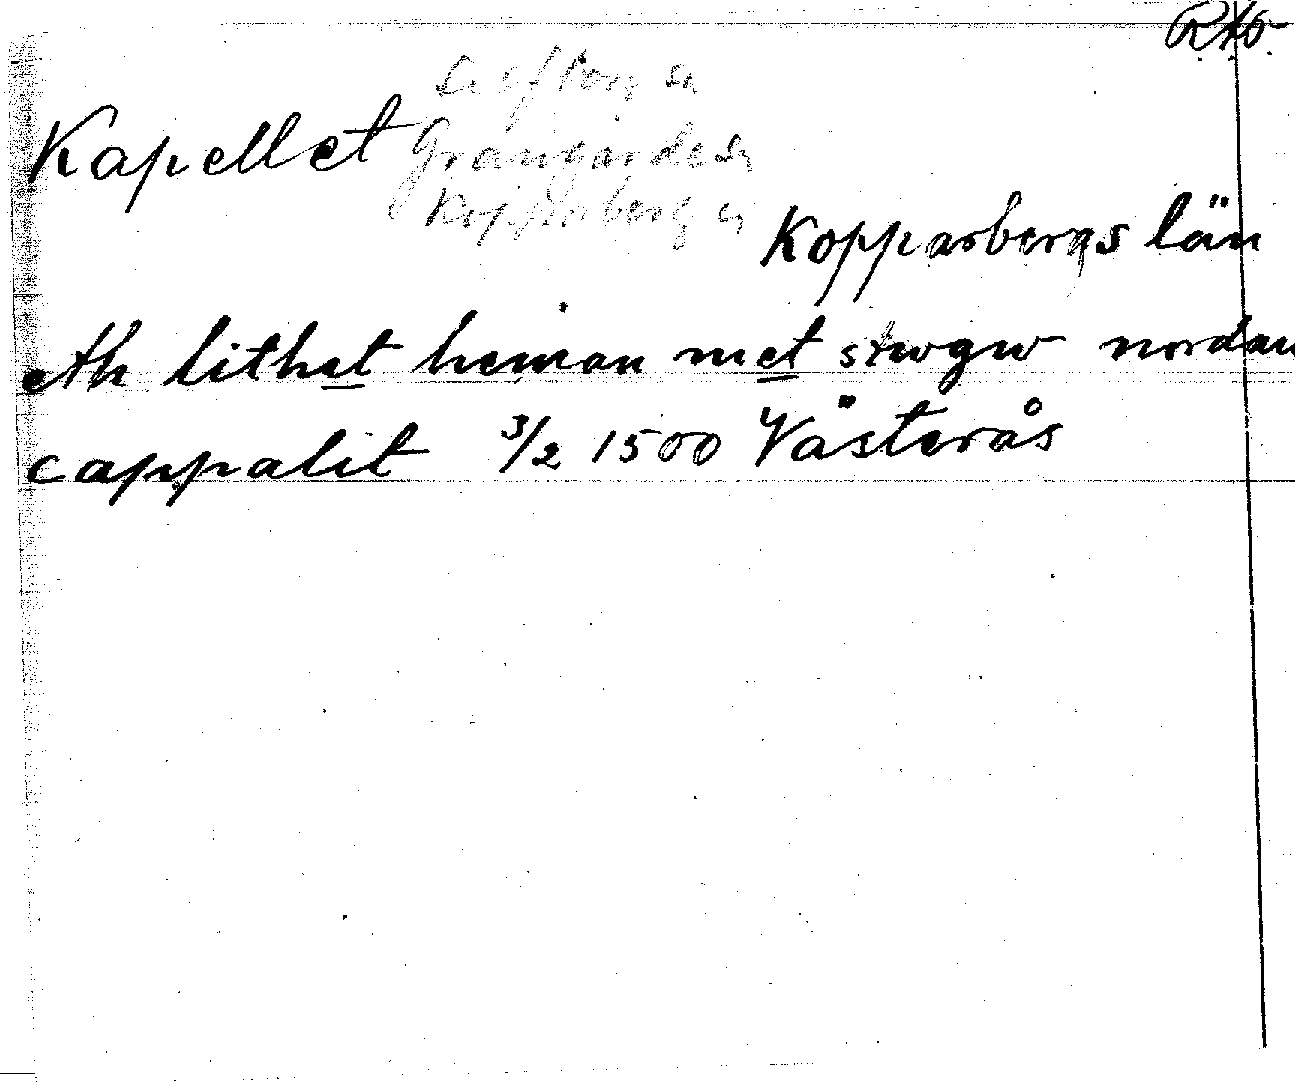 RAÖ.
Kapellet Grangärde sn
Kopparberg
Kopparbergs län
eth lithet heman met stwgw nordan
cappalit 3/2 1500 Västerås